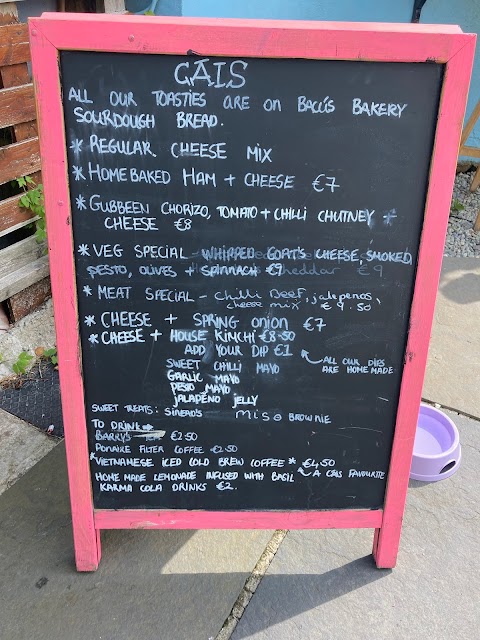 CÁIS
ALL OUR TOASTIES ARE ON BACÚS BAKERY
SOURDOUGH BREAD.
* REGULAR CHEESE MIX
* HOMEBAKED HAM + CHEESE €7
* GUBBEEN CHORIZO, TOMATO + CHILLI CHUTNEY *
CHEESE €8
* VEG SPECIAL - WHIPPED GOAT'S CHEESE, SMOKED
PESTO, OLIVES + SPINNACH €9 cheddar €9
* MEAT SPECIAL - Chilli Beef, jalapenos,
cheese mix €9.50
* CHEESE + SPRING ONION €7
* CHEESE + HOUSE KIMCHI €8.50
ADD YOUR DIP €1
ALL OUR DIPS
ARE HOMEMADE
SWEET CHILLI MAYO
GARLIC MAYO
PESTO MAYO
JALAPENO JELLY
SWEET TREATS: SINEAD'S MISO BROWNIE
TO DRINK
BARRY'S TEA €2.50
FILTER COFFEE €2.50
*VIETNAMESE ICED COLD BREW COFFEE * €4.50
A CÁIS FAVOURITE
HOME MADE LEMONADE INFUSED WITH BASIL
KARMA COLA DRINKS €2.